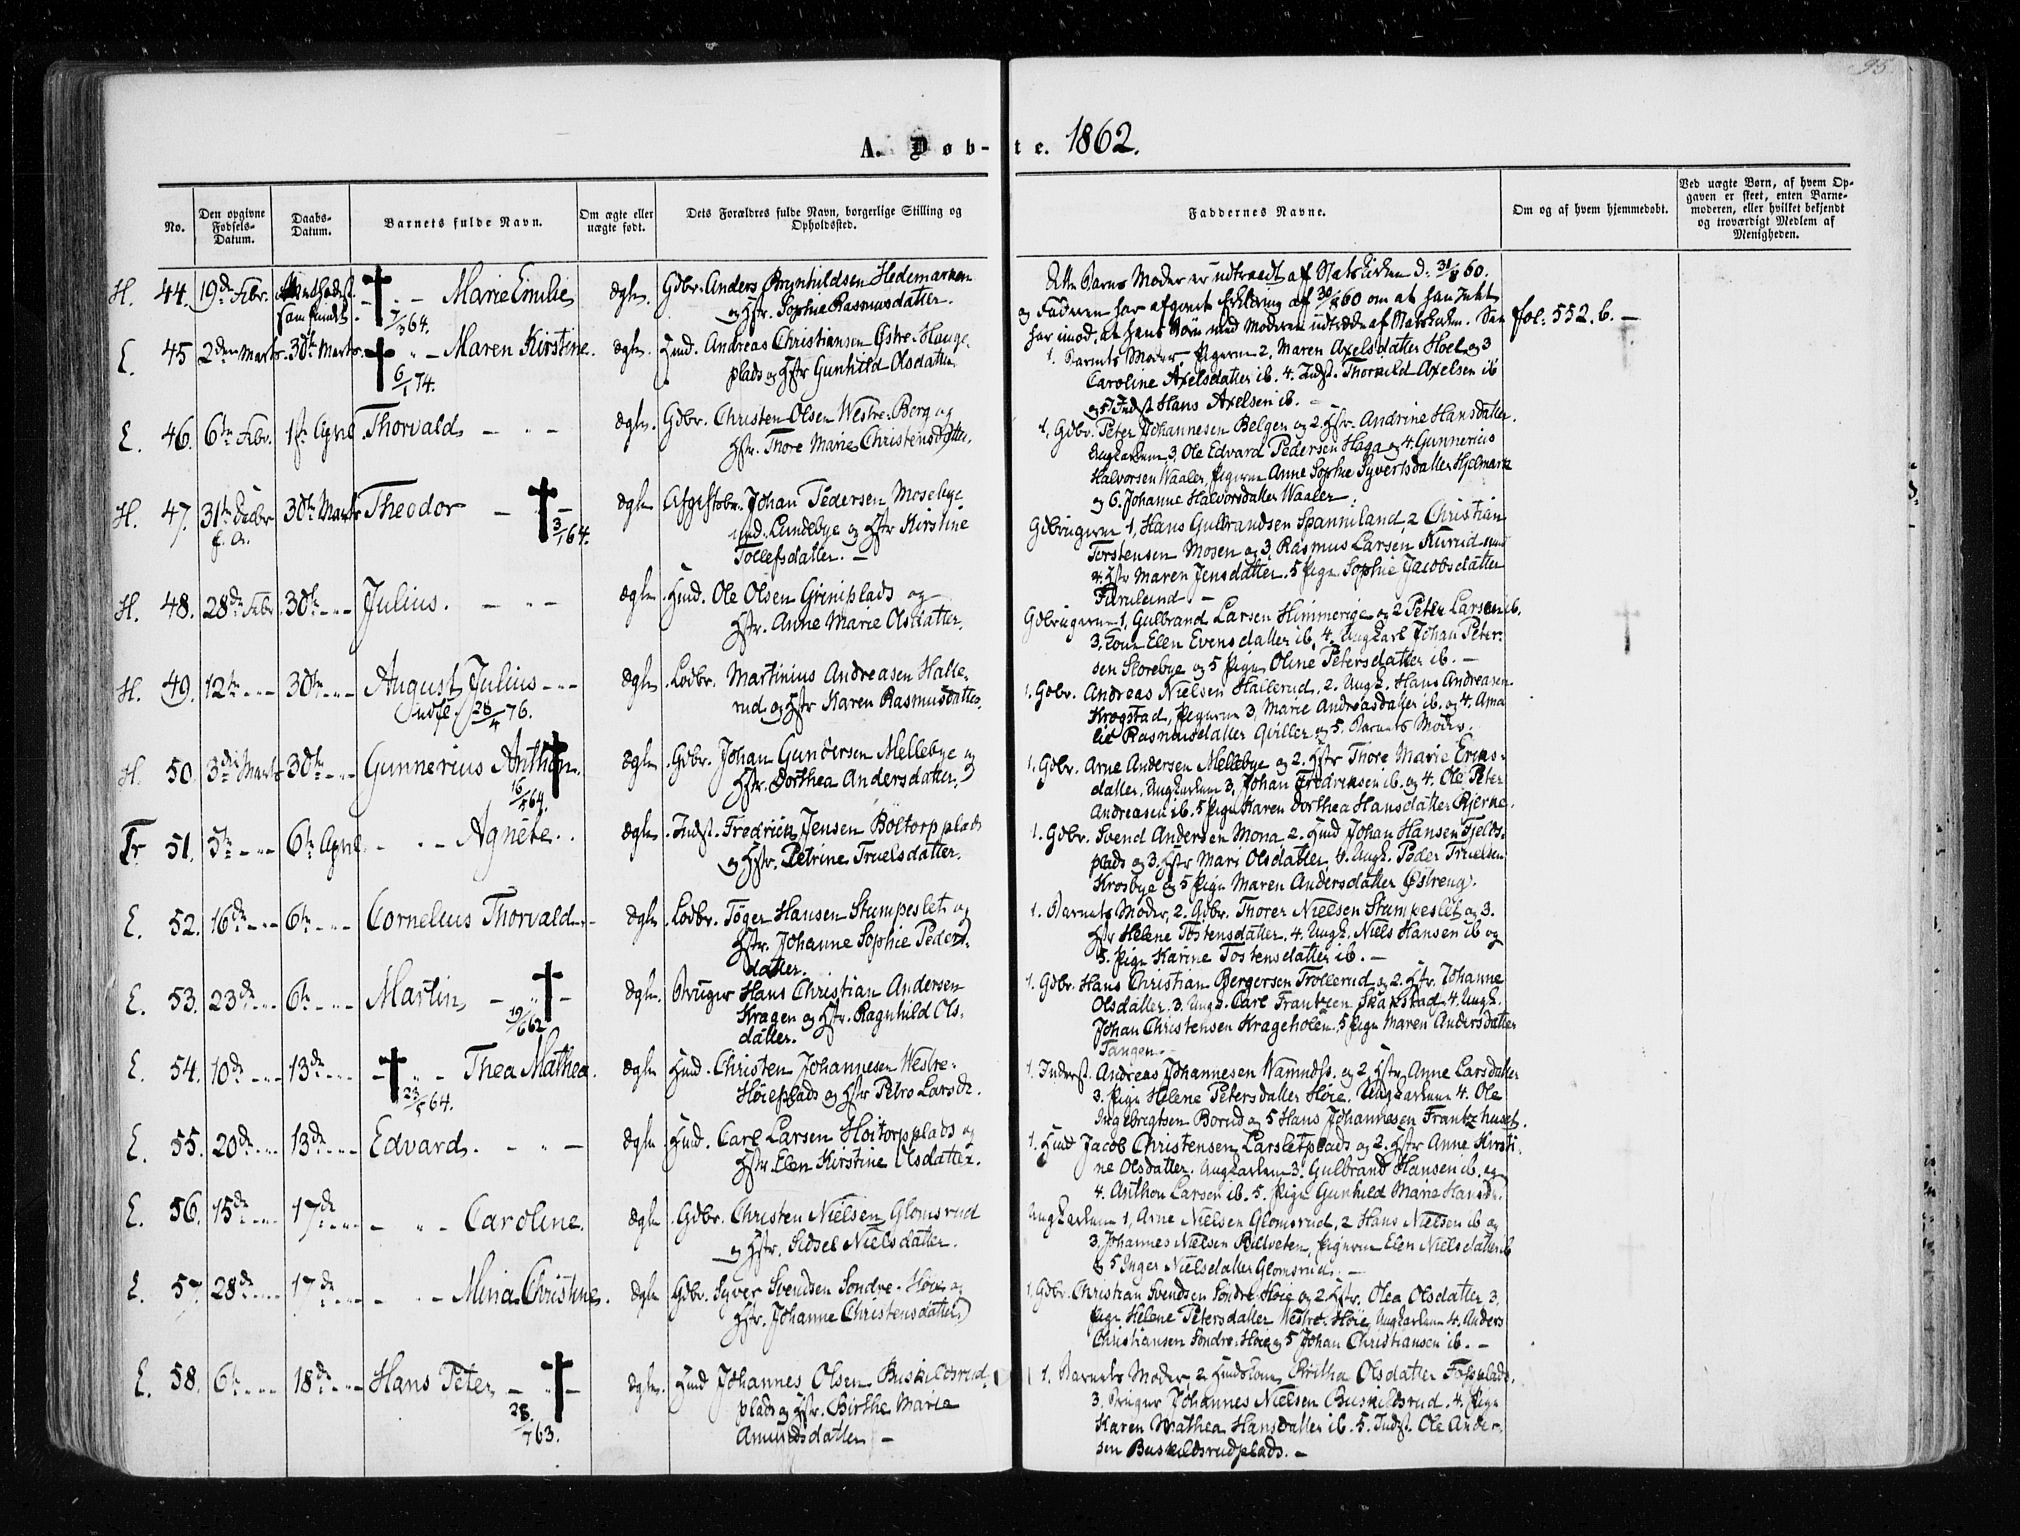 95.
A. Døb-te. 1862.
No.
Den opgivne Fødsels-Datum.
Daabs-Datum.
Barnets fulde Navn.
Om ægte eller uægte født.
Dets Forældres fulde Navn, borgerlige Stilling og Opholdssted.
Faddernes Navne.
Om og af hvem hjemmedøbt.
Ved uægte Børn, af hvem Opgaven er skeet, enten Barnemoderen, eller hvilket bekjendt og troværdigt Medlem af Menigheden.
H. 44. 19de Febr. Marie Emilie ægte. Gdbr. Anders Brynhildsen Hedemarken
og Hstr. Sophie Rasmusdatter.
7/3 64.
Barns Moder er udtraadt af Statskirken d. 31/8 60.
og Faderen har afgivet Erklæring af 30/8 60 om at han Intet
har imod, at hans Børn med Moderen udtræde af Statskirken. See fol: 552. b. —
E. 45 2den Marts. 30te Marts. Maren Kirstine. ægte. Huusd. Andreas Christiansen Østre-Hauge-
plads og Hstr Gunhild Olsdatter
6/1 74.
1. Barnets Moder Pigerne 2. Maren Axelsdatter Hoel og 3
Caroline Axelsdatter ib. 4. Indst. Thorvild Axelsen ib
og 5 Indst Hans Axelsen ib. —
E. 46. 6te Febr. 1ste April Thorvald — " — ægte. Gdbr. Christen Olsen Westre-Berg og
Hstr. Thore Marie Christensdatter.
1. Gdbr. Peter Johannesen Belgen og 2. Hstr. Andrine Hansdatter.
Ungkarlene 3, Ole Edvard Pedersen Haga og 4. Gunnerius
Halvorsen Waaler, Pigerne Anne Sophie Syvertsdatter Hjelmark
og 6. Johanne Halvorsdatter Waaler.
H. 47. 31te Decbr 30te Marts Theodor — ægte Afgiftsbr. Johan Pedersen Mosebye
f. A.
und. Lundebye og Hstr Kirstine
Tollefsdatter. —
3/1 64.
Gdbrugerne 1, Hans Gulbrandsen Spanniland, 2 Christian
Torstensen Mosen og 3, Rasmus Larsen Kurud
4. Hstr Maren Jensdatter. 5 Pige Sophie Jacobsdatter
Furulund —
H. 48. 28de Febr 30te Julius. — " — ægte Huusd. Ole Olsen Griniplads og
Hstr. Anne Marie Olsdatter.
Gdbrugerne 1, Gulbrand Larsen Himmerige og 2 Peter Larsen ib.
3. Kone Elen Evensdatter ib. 4. Ungkarl Johan Peter-
sen Skorebye og 5 Pige Oline Petersdatter ib. —
H. 49. 12te 30te August Julius — ægte Lodbr. Martinius Andreasen Halle-
rud og Hstr Karen Rasmusdatter.
udfl. 28/4 76.
1. Gdbr. Andreas Nielsen Hallerud, 2. Ungk. Hans Andreasen
Krogstad, Pigerne 3, Marie Andreasdatter ib. og 4. Ama
lie Rasmusdatter Qviller og 5. Barnets Moder.
H. 50. 3die Marts 30te Gunnerius Anthon. ægte Gdbr. Johan Gundersen Mellebye og
Hstr. Dorthea Andersdatter.
16/4 64.
1. Gdbr. Arne Andersen Mellebye og 2. Hstr Thore Marie Eriks-
datter, Ungkarlene 3, Johan Fredriksen ib. og 4. Ole Peter
Andreasen ib. 5 Pige Karen Dorthea Hansdatter Bjerke.
Tr 51. 5te 6te April. — " — Agnete. ægte Indst. Fredrik Jensen Boltorpplads
og Hstr. Petrine Truelsdatter.
1. Gdbr. Svend Andersen Mona 2. Huusd Johan Hansen Tjelds-
plads og 3. Hstr Mari Olsdatter, 4. Ungk. Peder Truelsen
Krosbye og 5 Pige Maren Andersdatter Østreng.
E. 52. 16de 6te Cornelius Thorvald — ægte Lodbr. Tøger Hansen Stumpeslet og
Hstr. Johanne Sophie Peders-
datter.
1. Barnets Moder, 2. Gdbr. Thorer Nielsen Stumpeslet og 3.
Hstr Helene Tostensdatter. 4. Ungk. Niels Hansen ib og
5. Pige Karine Tostensdatter ib. —
E. 53. 23de 6te Martin — ægte. Bruger Hans Christian Andersen
Kragen og Hstr. Ragnhild Ols-
datter.
19/6 62
1. Gdbr. Hans Christian Bergersen Trollerud og 2. Hstr. Johanne
Olsdatter. 3. Ungk. Carl Frantzen Skakstad 4. Ungk.
Johan Christensen Krageholen. 5 Pige Maren Andersdatter
Tangen. —
E. 54. 10de 13de Thea Mathea. ægte Huusd. Christen Johannesen Westre-
Høieplads og Hstr Petro Larsdr.
23/5 64.
1. Inderst. Andreas Johannesen og 2 Hstr Anne Larsdatter
3. Pige Helene Petersdatter Høie. Ungkarlene 4. Ole
Ingebrigtsen Borud og 5 Hans Johannesen Frantzhuset.
E. 55. 20de 13de Edvard. — " — ægte Huusd. Carl Larsen Hoitorpplads og
Hstr Elen Kirstine Olsdatter.
1. Huusd Jacob Christensen Larsletplads og 2. Hstr Anne Kirsti-
ne Olsdatter. Ungkarlene 3. Gulbrand Hansen ib. og
4. Anthon Larsen ib. 5. Pige Gunhild Marie Hansdr.
E. 56. 15de 17de — " — Caroline. ægte Gdbr. Christen Nielsen Glomsrud
og Hstr. Sidsel Nielsdatter.
Ungkarlene 1, Arne Nielsen Glomsrud, 2 Hans Nielsen ib og
3. Johannes Nielsen Pigerne Elen Nielsdatter ib
& 5 Inger Nielsdatter Glomsrud. —
E. 57. 28de 17de — " — Mina Christine. ægte Gdbr. Syver Svendsen Søndre-Høie og
Hstr. Johanne Christensdatter.
1. Gdbr. Christian Svendsen Søndre Høie og 2 Hstr. Olea Olsdatter 3.
Pige Helene Petersdatter Westre-Høie, Ungkarlene 4. Anders
Christiansen Søndre-Høie og 5 Johan Christiansen ib. —
E. 58. 6te 18de Hans Peter — ægte. Huusd Johannes Olsen Buskildsrud-
plads og Hstr. Birthe Marie
Amundsdatter —
28/7 63.
1. Barnets Moder, 2. Huusdskone Birtha Olsdatter Fossplads.
3. Bruger Johannes Nielsen Buskildsrud. 4. Pige
Karen Mathea Hansdatter ib. 5. Indst. Ole Ander-
sen Buskildsrudplads. —